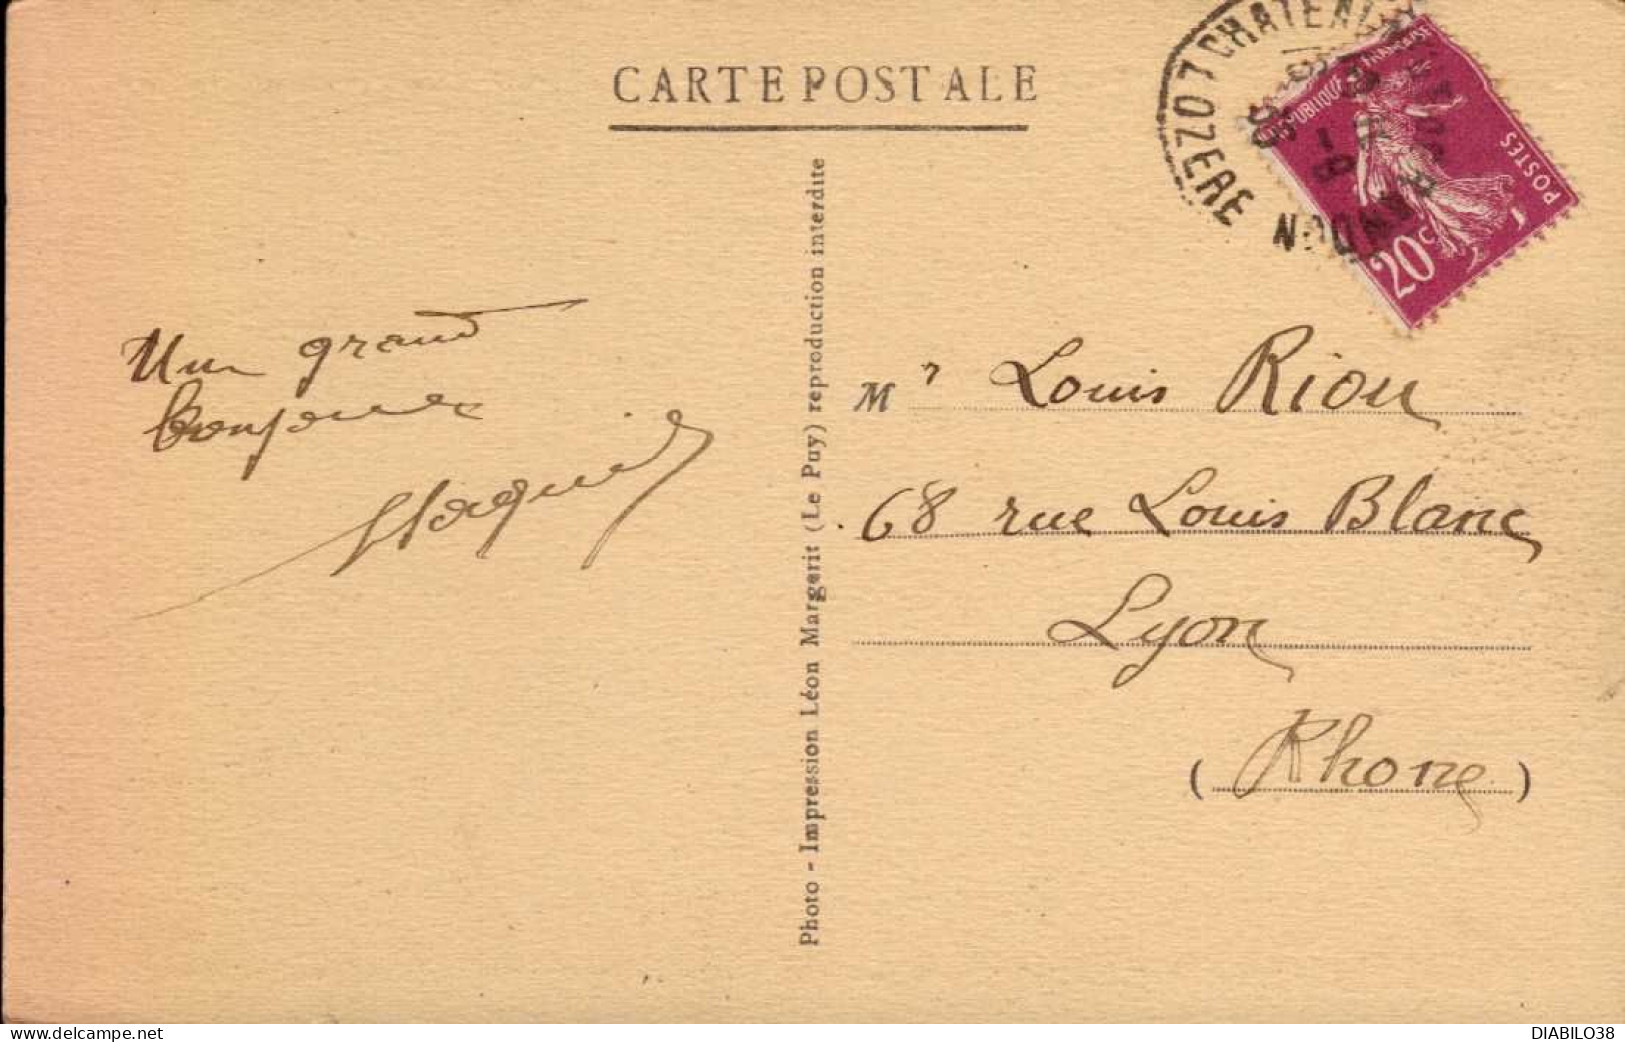 CARTE POSTALE
CHATEAUNEUF DE RANDON LOZERE
REPUBLIQUE FRANÇAISE
POSTES
20c
Un grand
bonjour
Photo - Impression Léon Margerit (Le Puy) reproduction interdite
Mr Louis Riou
68 rue Louis Blanc
Lyon
(Rhone)
www.delcampe.net
DIABILO38